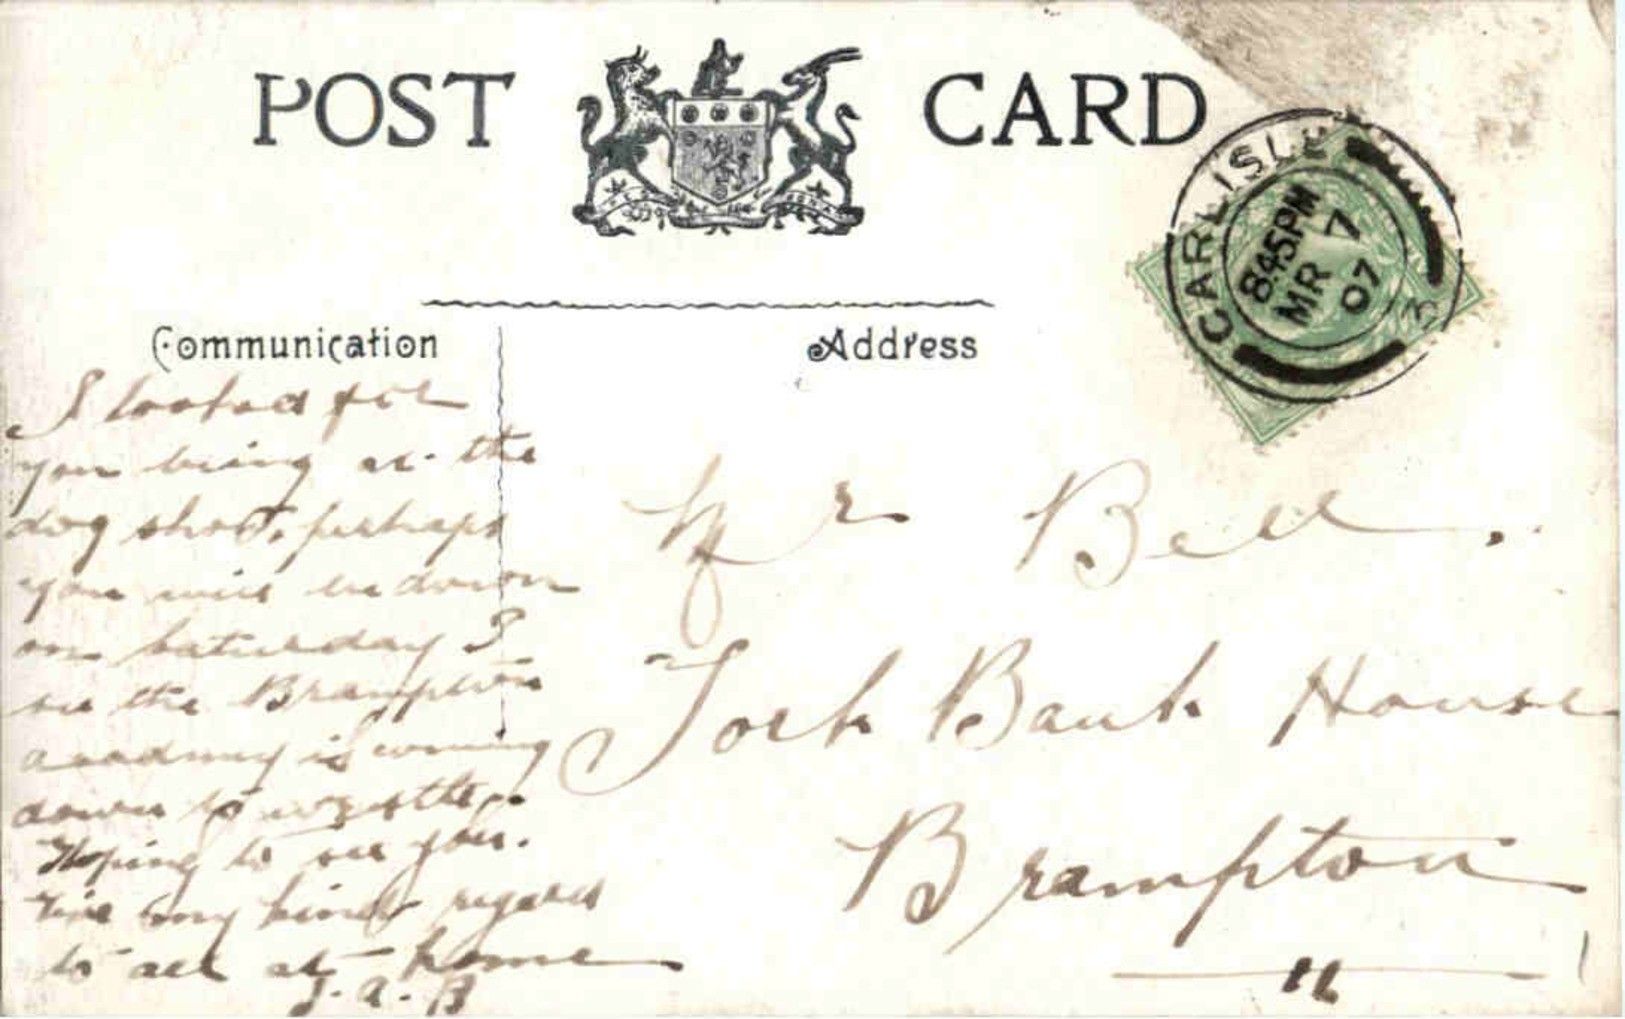 POST CARD
CARLISLE
8.45PM
MR 7
07
Communication
Address
I looked for
you being at the
dog show, perhaps
you will be down
on Saturday ?
see the Brampton
academy is coming
down to
Hoping to see you.
Give my kind regards
to all at home
J. A. B
Mr Bell.
Tork Bank House
Brampton